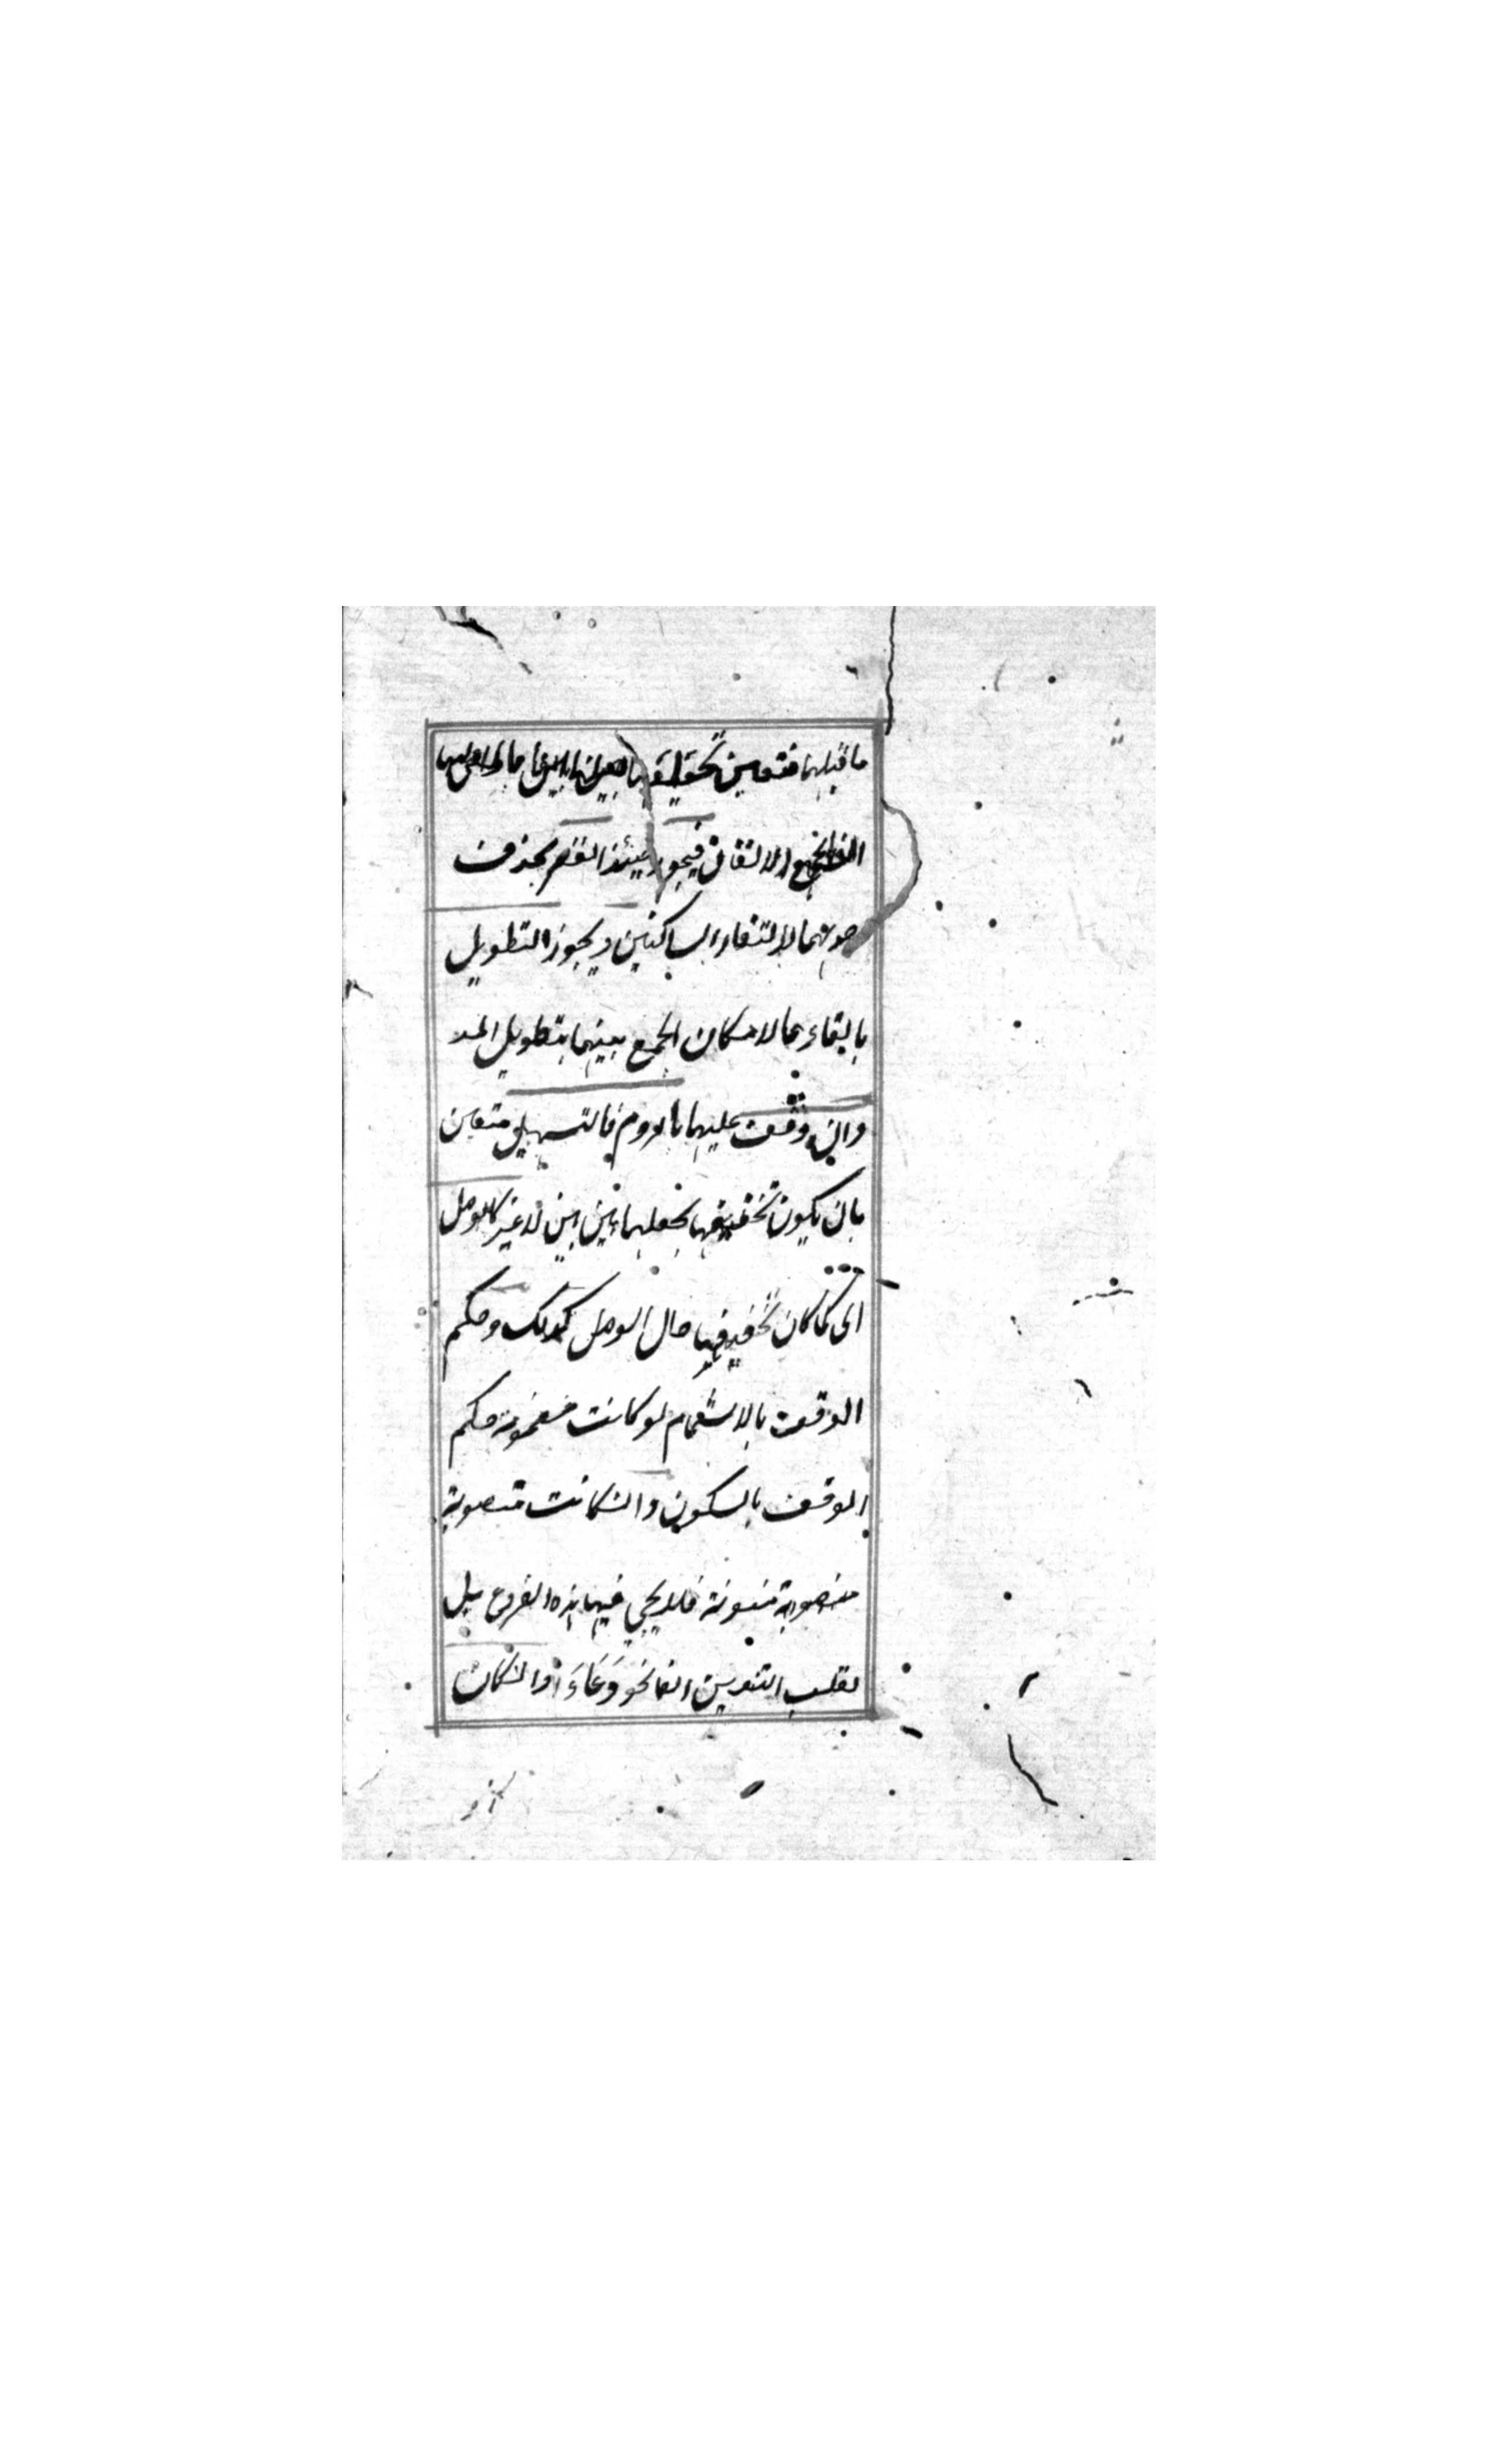 ما قبلهما فتعين
الالفان فيجوز حينئذ القصر بحذف
لالتقاء الساكنين ويجوز التطويل
بابقاءهما لامكان الجمع بينهما بتطويل المد
وان وقفت عليها بالروم فالتسهيل متعين
بان يكون تخفيفها بجعلها بين بين لا غير كالوصل
اى كما كان تخفيفها حال الوصل كذلك وحكم
الوقف بالاشمام لو كانت مضمومة حكم
الوقف بالسكون وان كانت منصوبة
منصوبة منونة فلا يجئ فيها هذه الفروع بل
تقلب التنوين الفا نحو دعاءا وان كان